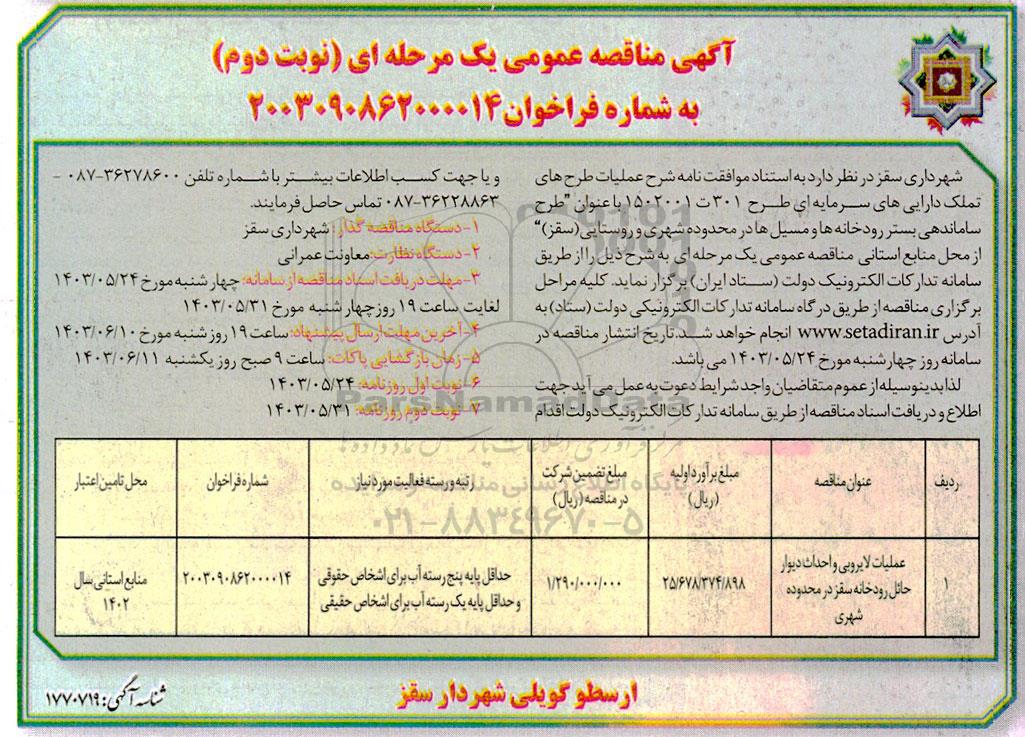 آگهی مناقصه عمومی یک مرحله ای (نوبت دوم)
به شماره فراخوان ۲۰۰۳۰۹۰۸۶۲۰۰۰۰۱۴
شهرداری سقز در نظر دارد به استناد موافقت نامه شرح عملیات طرح های
تملک دارایی های سرمایه ای طرح ۳۰۱ ت ۱۵۰۲۰۰۱ با عنوان "طرح
ساماندهی بستر رودخانه ها و مسیل ها در محدوده شهری و روستایی (سقز)"
از محل منابع استانی مناقصه عمومی یک مرحله ای به شرح ذیل را از طریق
سامانه تدارکات الکترونیک دولت (ستاد ایران) برگزار نماید. کلیه مراحل
برگزاری مناقصه از طریق درگاه سامانه تدارکات الکترونیکی دولت (ستاد) به
آدرس www.setadiran.ir انجام خواهد شد. تاریخ انتشار مناقصه در
سامانه روز چهارشنبه مورخ ۱۴۰۳/۰۵/۲۴ می باشد.
لذا بدینوسیله از عموم متقاضیان واجد شرایط دعوت به عمل می آید جهت
اطلاع و دریافت اسناد مناقصه از طریق سامانه تدارکات الکترونیک دولت اقدام
و یا جهت کسب اطلاعات بیشتر با شماره تلفن ۳۶۲۷۸۶۰۰-۰۸۷ -
۳۶۲۲۸۸۶۳-۰۸۷ تماس حاصل فرمایند.
۱- دستگاه مناقصه گذار: شهرداری سقز
۲- دستگاه نظارت: معاونت عمرانی
۳- مهلت دریافت اسناد مناقصه از سامانه: چهار شنبه مورخ ۱۴۰۳/۰۵/۲۴
لغایت ساعت ۱۹ روز چهار شنبه مورخ ۱۴۰۳/۰۵/۳۱
۴- آخرین مهلت ارسال پیشنهاد: ساعت ۱۹ روز شنبه مورخ ۱۴۰۳/۰۶/۱۰
۵- زمان بازگشایی پاکات: ساعت ۹ صبح روز یکشنبه ۱۴۰۳/۰۶/۱۱
۶- نوبت اول روزنامه: ۱۴۰۳/۰۵/۲۴
۷- نوبت دوم روزنامه: ۱۴۰۳/۰۵/۳۱
ParsNamadData
۰۲۱-۸۸۳۴۹۶۷۰-۵
ردیف
عنوان مناقصه
مبلغ برآورد اولیه
(ریال)
مبلغ تضمین شرکت
در مناقصه (ریال)
رتبه و رسته فعالیت مورد نیاز
شماره فراخوان
محل تامین اعتبار
۱
عملیات لایروبی و احداث دیوار
حائل رودخانه سقز در محدوده
شهری
۲۵/۶۷۸/۳۷۴/۸۹۸
۱/۲۹۰/۰۰۰/۰۰۰
حداقل پایه پنج رسته آب برای اشخاص حقوقی
و حداقل پایه یک رسته آب برای اشخاص حقیقی
۲۰۰۳۰۹۰۸۶۲۰۰۰۰۱۴
منابع استانی سال
۱۴۰۲
ارسطو گویلی شهردار سقز
شناسه آگهی: ۱۷۷۰۷۱۹